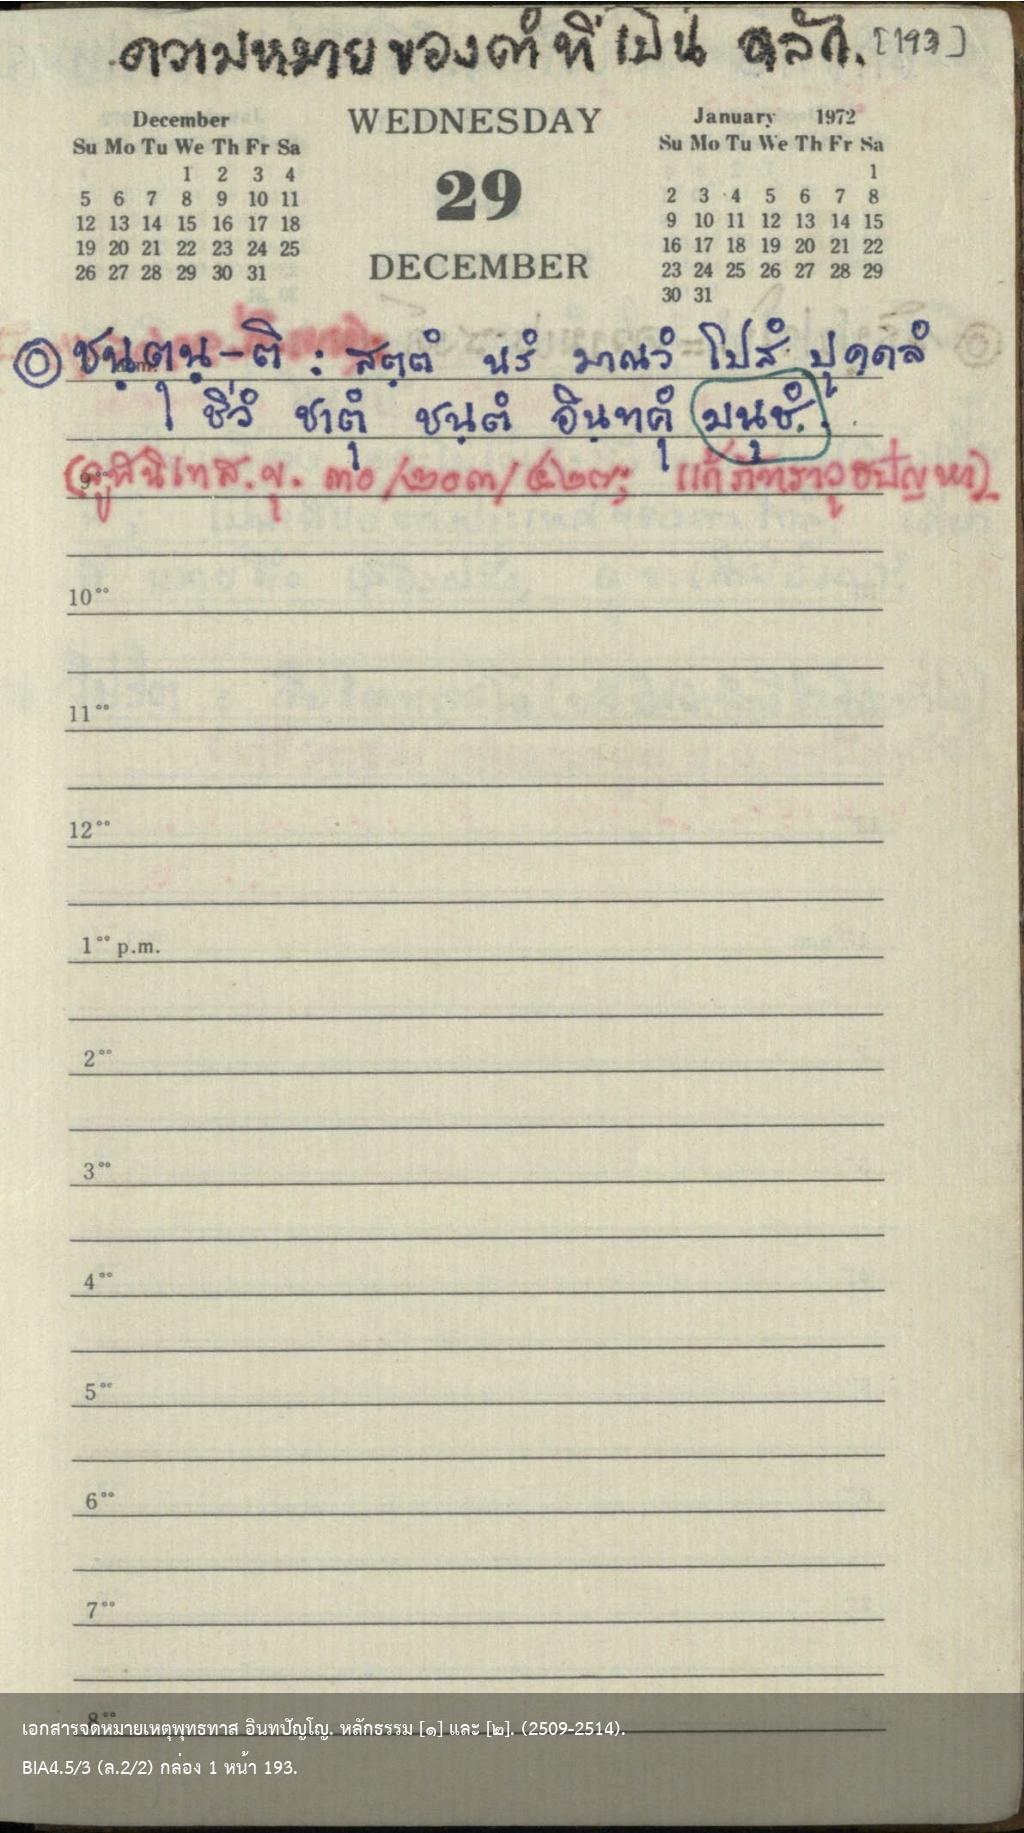 ความหมายของคำที่เป็นหลัก. [193]
December
Su Mo Tu We Th Fr Sa
1 2 3 4
5 6 7 8 9 10 11
12 13 14 15 16 17 18
19 20 21 22 23 24 25
26 27 28 29 30 31
WEDNESDAY
29
DECEMBER
January 1972
Su Mo Tu We Th Fr Sa
1
2 3 4 5 6 7 8
9 10 11 12 13 14 15
16 17 18 19 20 21 22
23 24 25 26 27 28 29
30 31
ชนฺตุนฺ-ติ : สตฺตํ นรํ มาณวํ โปสํ ปุคฺคลํ
ชีวํ ชาตุํ ชนฺตุํ อินฺทคุํ มนุชํ.
(จูฬนิเทส. ขุ. ๓๐/๒๐๓/๔๒๗; แก้ภัทราวุธปัญหา).
9
10°°
11°°
12°°
1°° p.m.
2°°
3°°
4°°
5°°
6°°
7°°
8°°
เอกสารจดหมายเหตุพุทธทาส อินทปัญโญ. หลักธรรม [๑] และ [๒]. (2509-2514).
BIA4.5/3 (ล.2/2) กล่อง 1 หน้า 193.